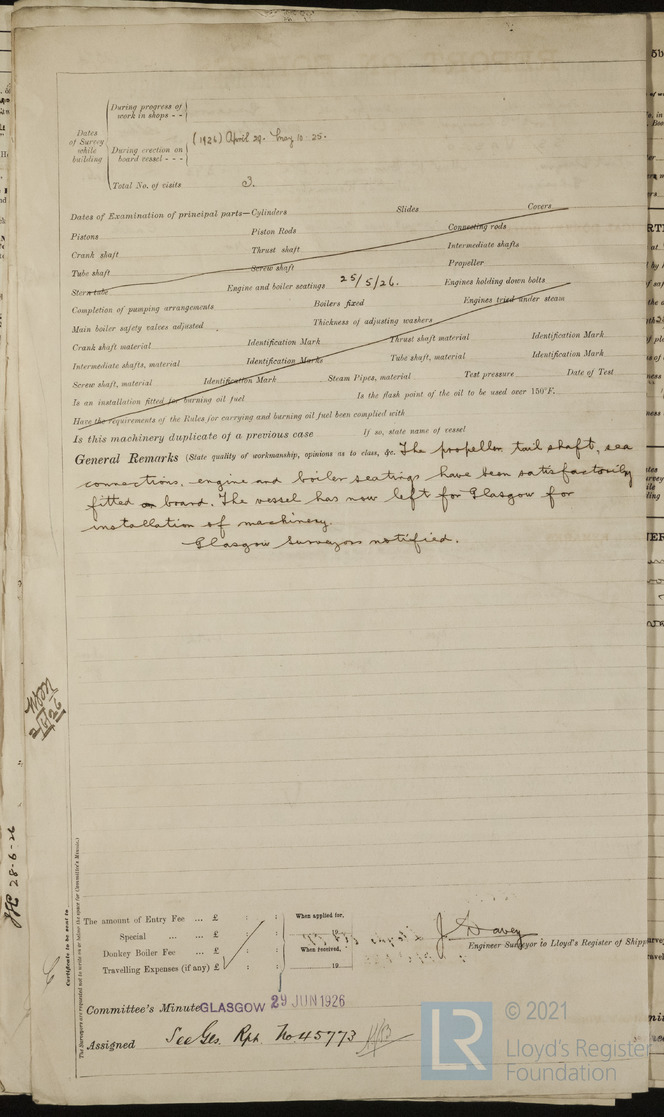 Dates of Survey while building
During progress of work in shops - -
During erection on board vessel - - -
(1926) April 29. May 10. 25.
Total No. of visits 3.
Dates of Examination of principal parts—Cylinders Slides Covers
Pistons Piston Rods Connecting rods
Crank shaft Thrust shaft Intermediate shafts
Tube shaft Screw shaft Propeller
Stern tube Engine and boiler seatings 25/5/26. Engines holding down bolts
Completion of pumping arrangements Boilers fixed Engines tried under steam
Main boiler safety valves adjusted Thickness of adjusting washers
Crank shaft material Identification Mark Thrust shaft material Identification Mark
Intermediate shafts, material Identification Marks Tube shaft, material Identification Mark
Screw shaft, material Identification Mark Steam Pipes, material Test pressure Date of Test
Is an installation fitted for burning oil fuel Is the flash point of the oil to be used over 150°F.
Have the requirements of the Rules for carrying and burning oil fuel been complied with
Is this machinery duplicate of a previous case If so, state name of vessel
General Remarks (State quality of workmanship, opinions as to class, &c. The propeller, tail shaft, sea
connections, engine and boiler seatings have been satisfactorily
fitted on board. The vessel has now left for Glasgow for
installation of machinery.
Glasgow Surveyors notified.
2/6/26
28-6-26
Certificate to be sent to
The Surveyors are requested not to write on or below the space for Committee's Minute.
The amount of Entry Fee ... £ : :
Special ... ... £ : :
Donkey Boiler Fee ... £ : :
Travelling Expenses (if any) £ : :
When applied for,
19
When received,
19
J. Davey
Engineer Surveyor to Lloyd's Register of Shipp
Committee's Minute GLASGOW 29 JUN 1926
Assigned See Gls. Rpt. No 45773
© 2021
Lloyd's Register
Foundation
LR